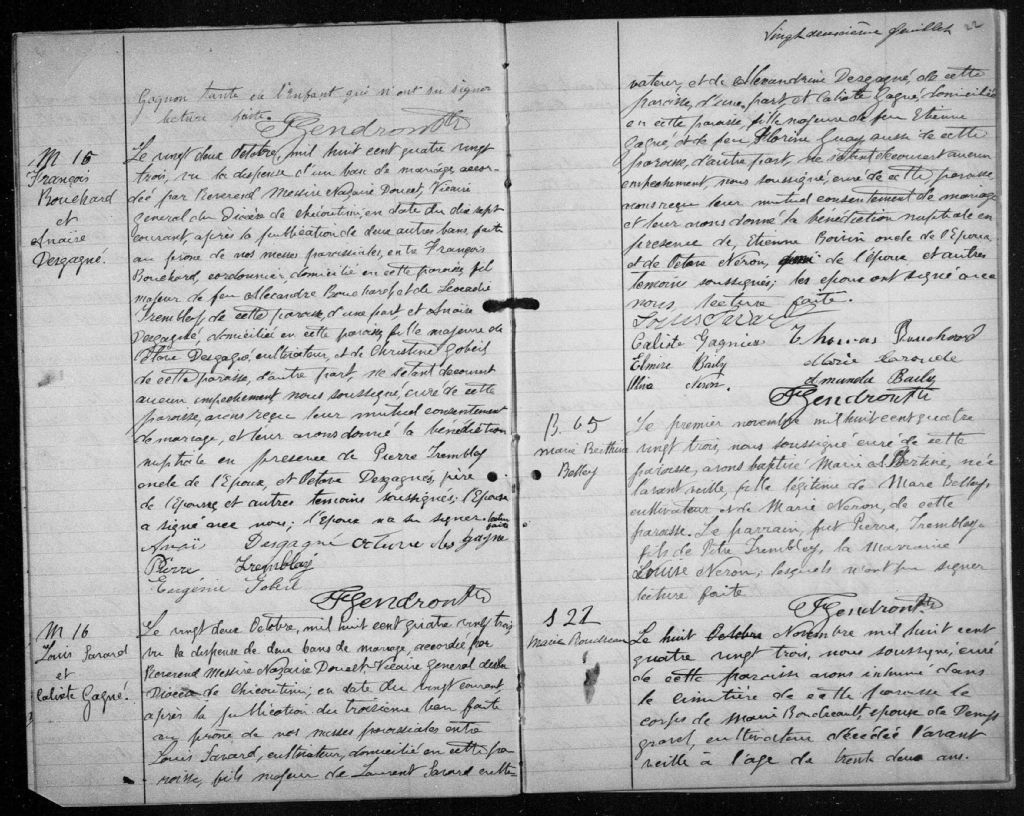 Gagnon tante de l'Enfant qui n'ont su signer
lecture faite.
FGendron Ptr
M 15
François
Bouchard
et
Anaïse
Desgagné.
Le vingt deux Octobre, mil huit cent quatre vingt
trois, vu la dispense d'un ban de mariage, accor-
dée par Reverend Messire Nazaire Doucet, Vicaire
General du Diocèse de Chicoutimi, en date du dix sept
courant, après la publication de deux autres bans faite
au prone de nos messes paroissiales, entre François
Bouchard, cordonnier, domicilié en cette paroisse, fils
majeur de feu Alexandre Bouchard et de Leocadie
Tremblay de cette paroisse, d'une part et Anaïse
Desgagné, domiciliée en cette paroisse, fille majeure de
Octave Desgagné, cultivateur, et de Christine Gobeil
de cette paroisse, d'autre part, ne s'étant decouvert
aucun empechement nous soussigné, curé de cette
paroisse, avons reçu leur mutuel consentement
de mariage, et leur avons donné la bénédiction
nuptiale en presence de Pierre Tremblay
oncle de l'Epoux, et Octave Desgagnés, père
de l'Epouse et autres temoins soussignés; l'Epouse
a signé avec nous; l'Epoux n'a su signer. lecture
faite
Anaïs Desgagné Octave des gagné
Pierre Tremblay
Eugénie Gobeil
FGendron Ptr
M 16
Louis Savard
et
Caliste Gagné.
Le vingt deux Octobre, mil huit cent quatre vingt trois,
vu la dispense de deux bans de mariage, accordée par
Reverend Messire Nazaire Doucet Vicaire General de la
Diocèse de Chicoutimi, en date du vingt courant,
après la publication du troisième ban faite
au prone de nos messes paroissiales entre
Louis Savard, cultivateur, domicilié en cette pa-
roisse, fils majeur de Laurent Savard culti-
Vingt deuxième feuillet 22
vateur, et de Alexandrine Desgagné, de cette
paroisse, d'une part et Caliste Gagné, domiciliée
en cette paroisse, fille majeure de feu Etienne
Gagné, et de feu Florine Guay aussi de cette
paroisse, d'autre part, ne s'étant decouvert aucun
empechement, nous soussigné, curé de cette paroisse
avons reçu leur mutuel consentement de mariage
et leur avons donné la bénédiction nuptiale en
presence de, Etienne Boivin oncle de l'Epoux,
et de Octave Néron, de l'épouse et autres
temoins soussignés; les epoux ont signé avec
nous lecture faite.
Louis Savard
Caliste Gagnier Thomas Bouchard
Elmire Baily Marie Larouche
Olina Neron. Amanda Baily
FGendron Ptr
B. 65
Marie Berthine
Belley
Le premier novembre mil huit cent quatre
vingt trois, nous soussigné curé de cette
paroisse, avons baptisé Marie Bertine, née
l'avant veille, fille légitime de Marc Belley,
cultivateur et de Marie Neron, de cette
paroisse. Le parrain, fut Pierre Tremblay
fils de Pitre Tremblay, la Marraine
Louise Neron; lesquels n'ont pu signer
lecture faite
FGendron Ptr
S 22
Marie Boudreau
Le huit Octobre Novembre mil huit cent
quatre vingt trois, nous soussigné, curé
de cette paroisse avons inhumé dans
le cimetière de cette paroisse le
corps de Marie Boudreault, epouse de Demps
gravel, cultivateur décédée l'avant
veille à l'age de trente deux ans.